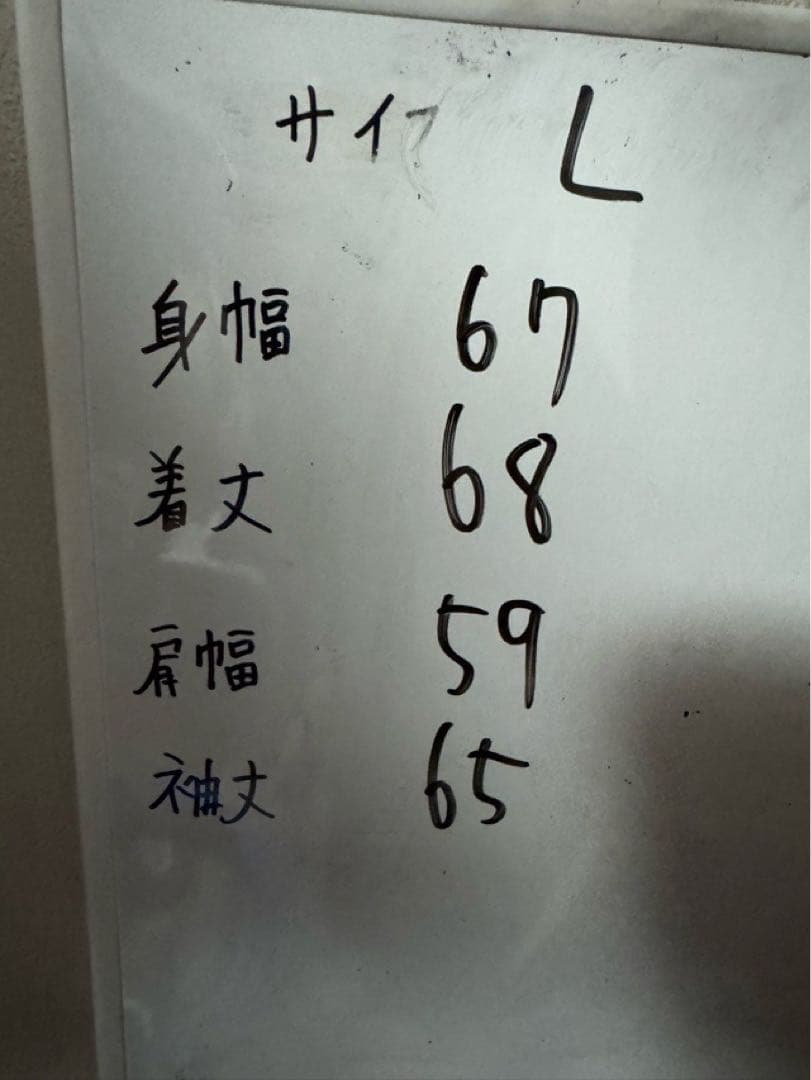 サイズ L
身幅 67
着丈 68
肩幅 59
袖丈 65